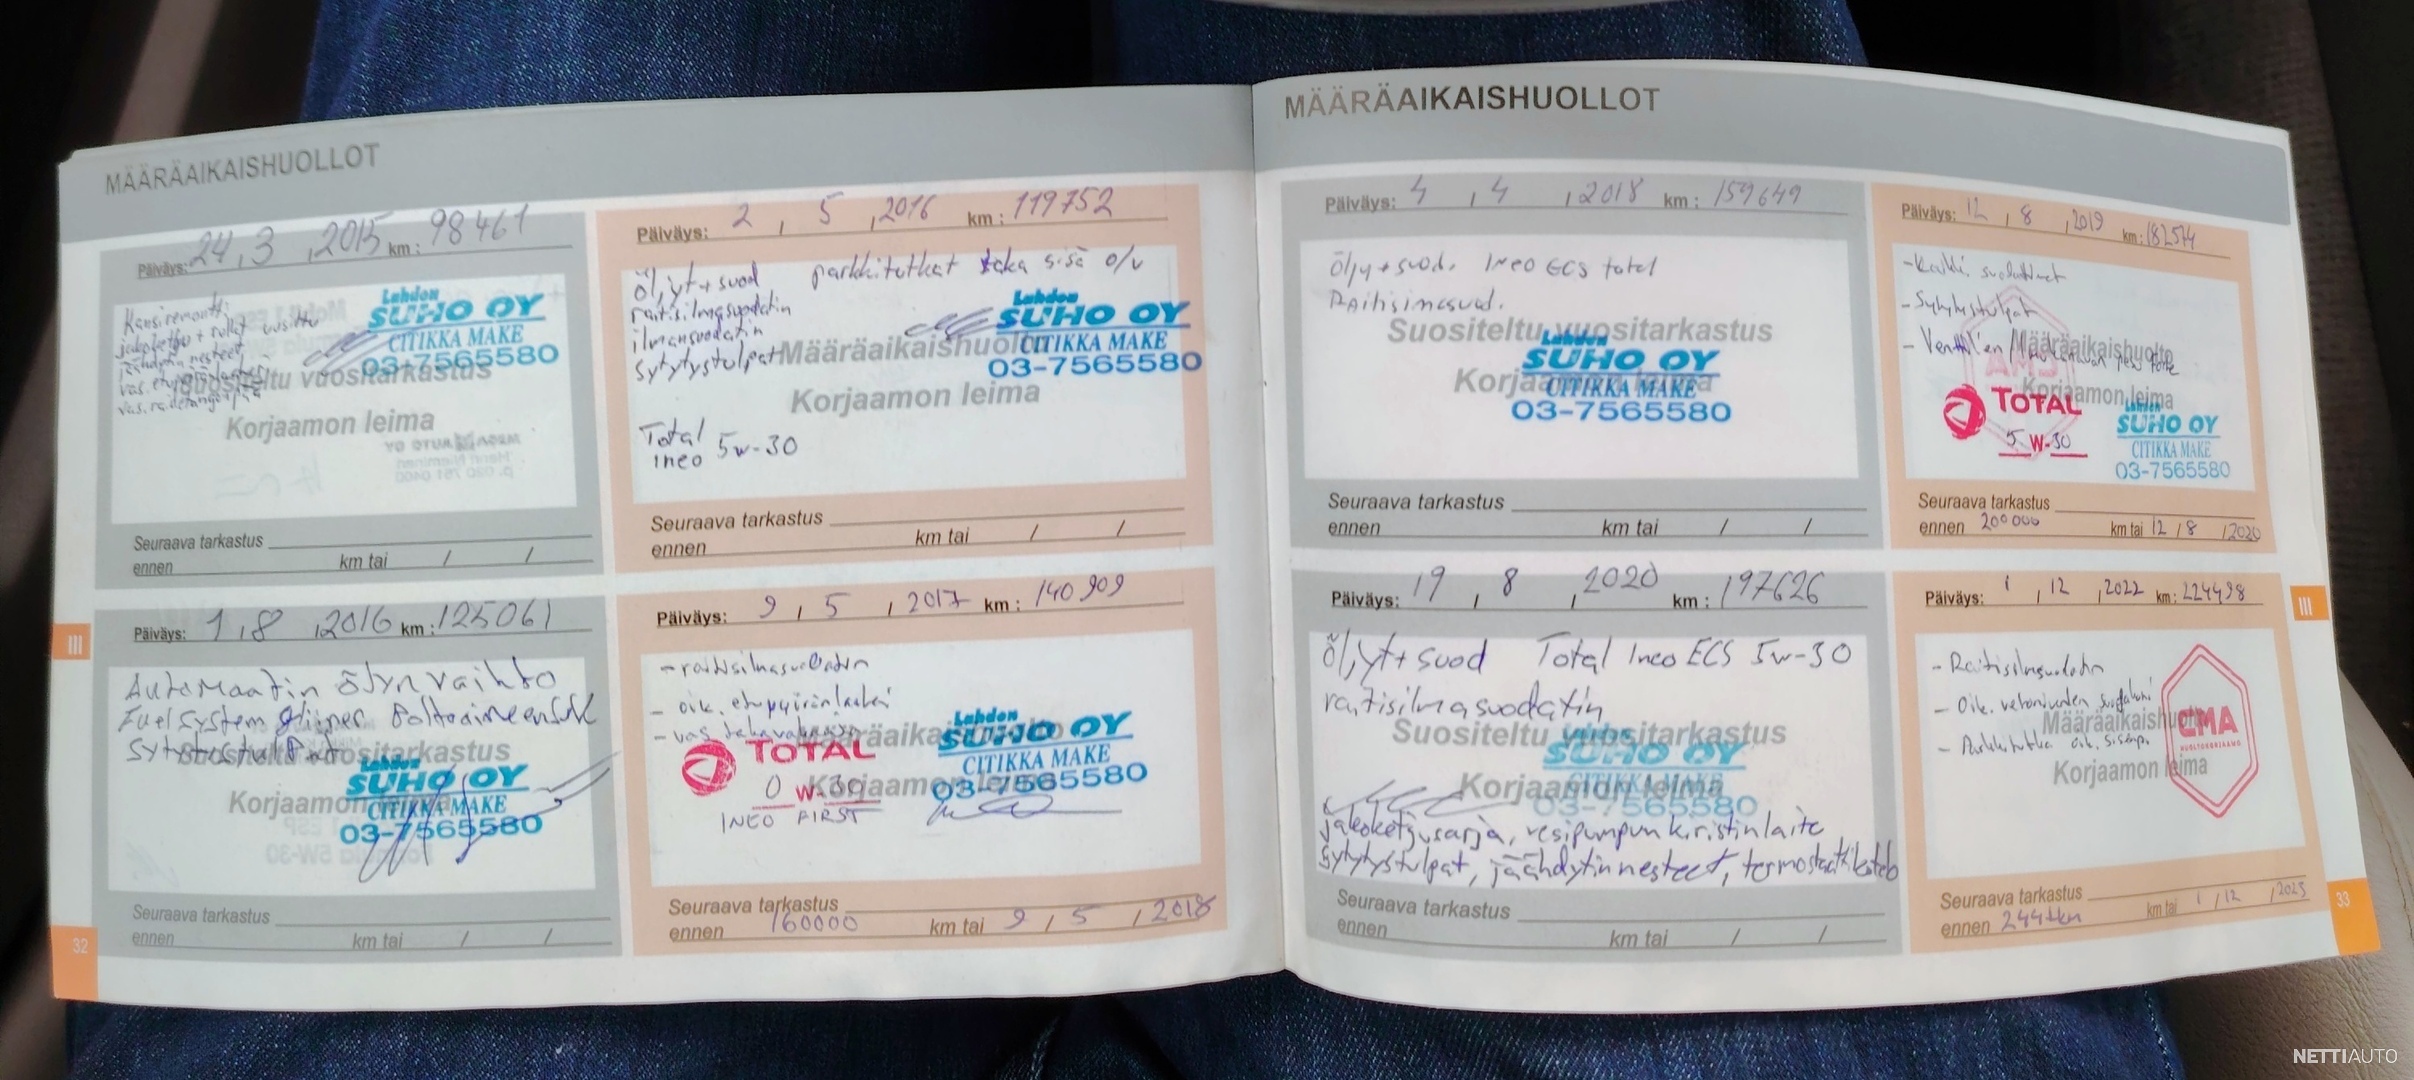 MÄÄRÄAIKAISHUOLLOT
Päiväys: 24 , 3 , 2015 km : 98461
Kansiremontti
jakoketju + rullat uusittu
jäähdytin nesteet
vas.
Lahden
SUHO OY
CITIKKA MAKE
03-7565580
Suositeltu vuositarkastus
Korjaamon leima
Seuraava tarkastus
ennen km tai / /
Päiväys: 2 , 5 , 2016 km : 119752
Öljyt + suod parkkitutkat taka sisä o/v
raitisilmasuodatin
ilmansuodatin
sytytystulpat
Lahden
SUHO OY
CITIKKA MAKE
03-7565580
Määräaikaishuolto
Korjaamon leima
Total
Ineo 5w-30
Seuraava tarkastus
ennen km tai / /
Päiväys: 1 , 8 , 2016 km : 125061
Automaatin öljyn vaihto
Fuel system
Sytytystulpat
Suositeltu vuositarkastus
Korjaamon leima
Lahden
SUHO OY
CITIKKA MAKE
03-7565580
Seuraava tarkastus
ennen km tai / /
Päiväys: 9 , 5 , 2017 km : 140909
- raitisilmasuodatin
- oik. etupyöränlaakeri
- vas
Määräaikaishuolto
Korjaamon leima
TOTAL
0 W-30
INEO FIRST
Lahden
SUHO OY
CITIKKA MAKE
03-7565580
Seuraava tarkastus
ennen 160000 km tai 9 / 5 , 2018
III
32
MÄÄRÄAIKAISHUOLLOT
Päiväys: 4 , 4 , 2018 km : 159649
Öljy + suod. Ineo ECS total
Raitisimasuod.
Suositeltu vuositarkastus
Korjaamon leima
Lahden
SUHO OY
CITIKKA MAKE
03-7565580
Seuraava tarkastus
ennen km tai / /
Päiväys: 12 , 8 , 2019 km : 182574
- Kaikki suodattimet
- Sytytystulpat
- Venttiilien
Määräaikaishuolto
Korjaamon leima
TOTAL
5 W-30
Lahden
SUHO OY
CITIKKA MAKE
03-7565580
Seuraava tarkastus
ennen 200000 km tai 12 / 8 / 2020
Päiväys: 19 , 8 , 2020 km : 197626
Öljyt + suod Total Ineo ECS 5w-30
raitisilmasuodatin
Suositeltu vuositarkastus
Korjaamon leima
Lahden
SUHO OY
CITIKKA MAKE
03-7565580
jakoketjusarja, vesipumpun kiristinlaite
sytytystulpat, jäähdytinnesteet, termostaattikotelo
Seuraava tarkastus
ennen km tai / /
Päiväys: 1 , 12 , 2022 km : 224498
- Raitisilmasuodatin
- Oik. vetonivelen suojakumi
- Parkkitutka oik. sisemp.
Määräaikaishuolto
Korjaamon leima
CMA
HUOLTOKORJAAMO
Seuraava tarkastus
ennen 244tkm km tai 1 / 12 / 2023
III
33
NETTIAUTO